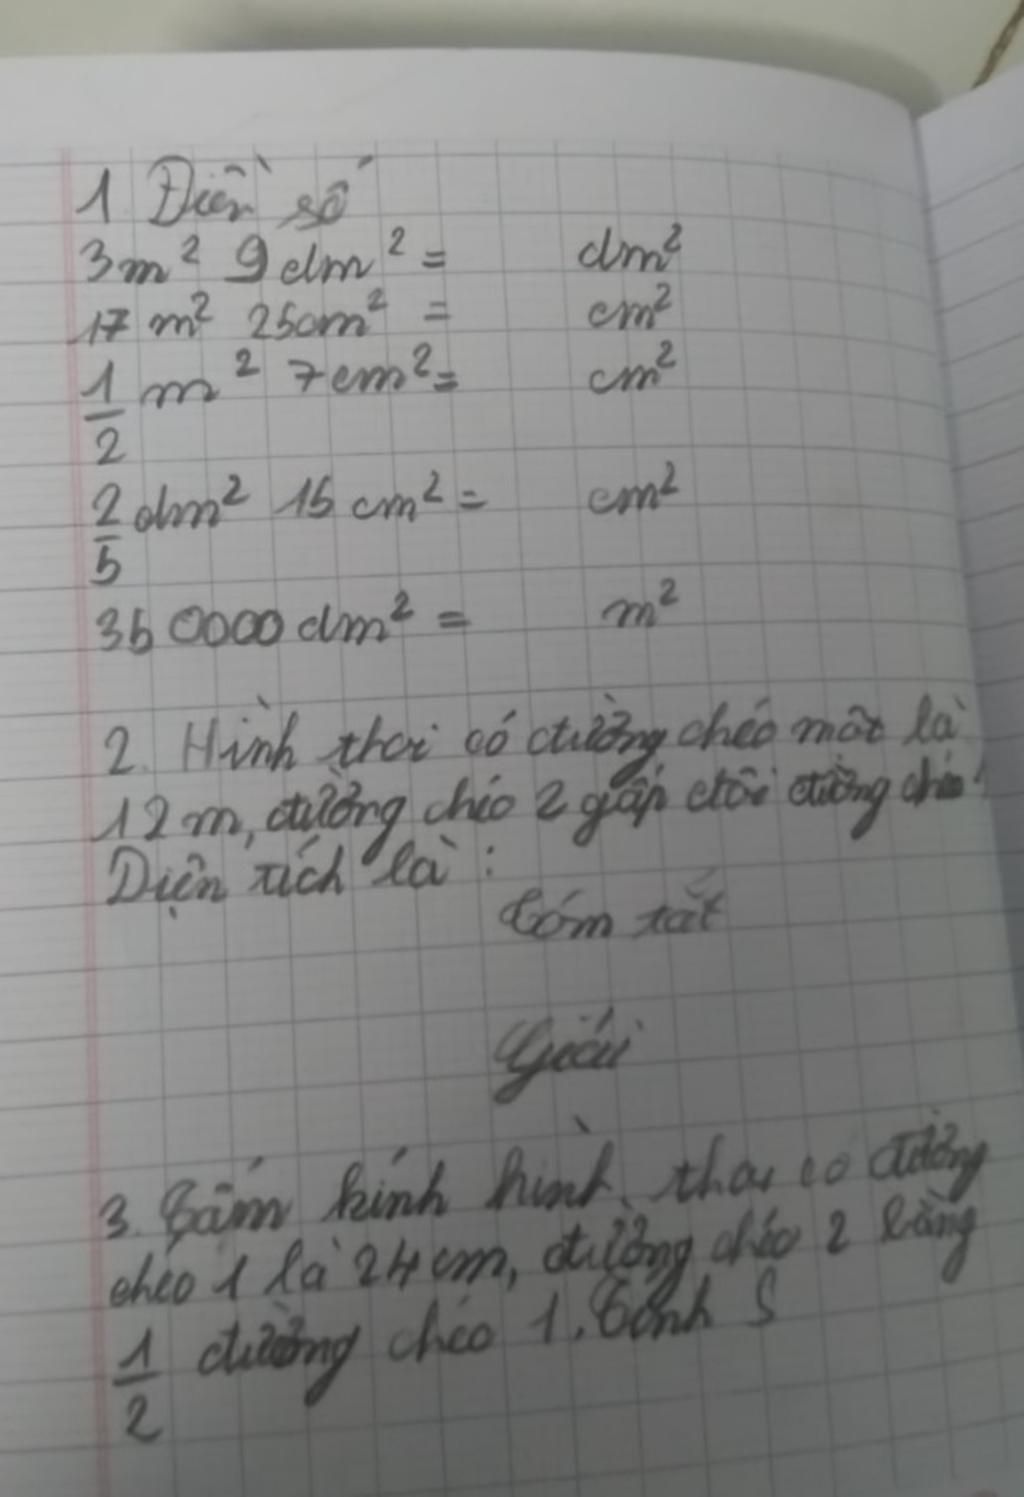 1 Điền số
3m² 9dm² = dm²
17 m² 25cm² = cm²
1/2 m² 7cm² = cm²
2/5 dm² 15 cm² = cm²
350000 dm² = m²
2. Hình thoi có đường chéo một là
12m, đường chéo 2 gấp đôi đường chéo 1
Diện tích là:
Tóm tắt
Giải
3. Tấm kính hình thoi có đường
chéo 1 là 24cm, đường chéo 2 bằng
1/2 đường chéo 1. Tính S